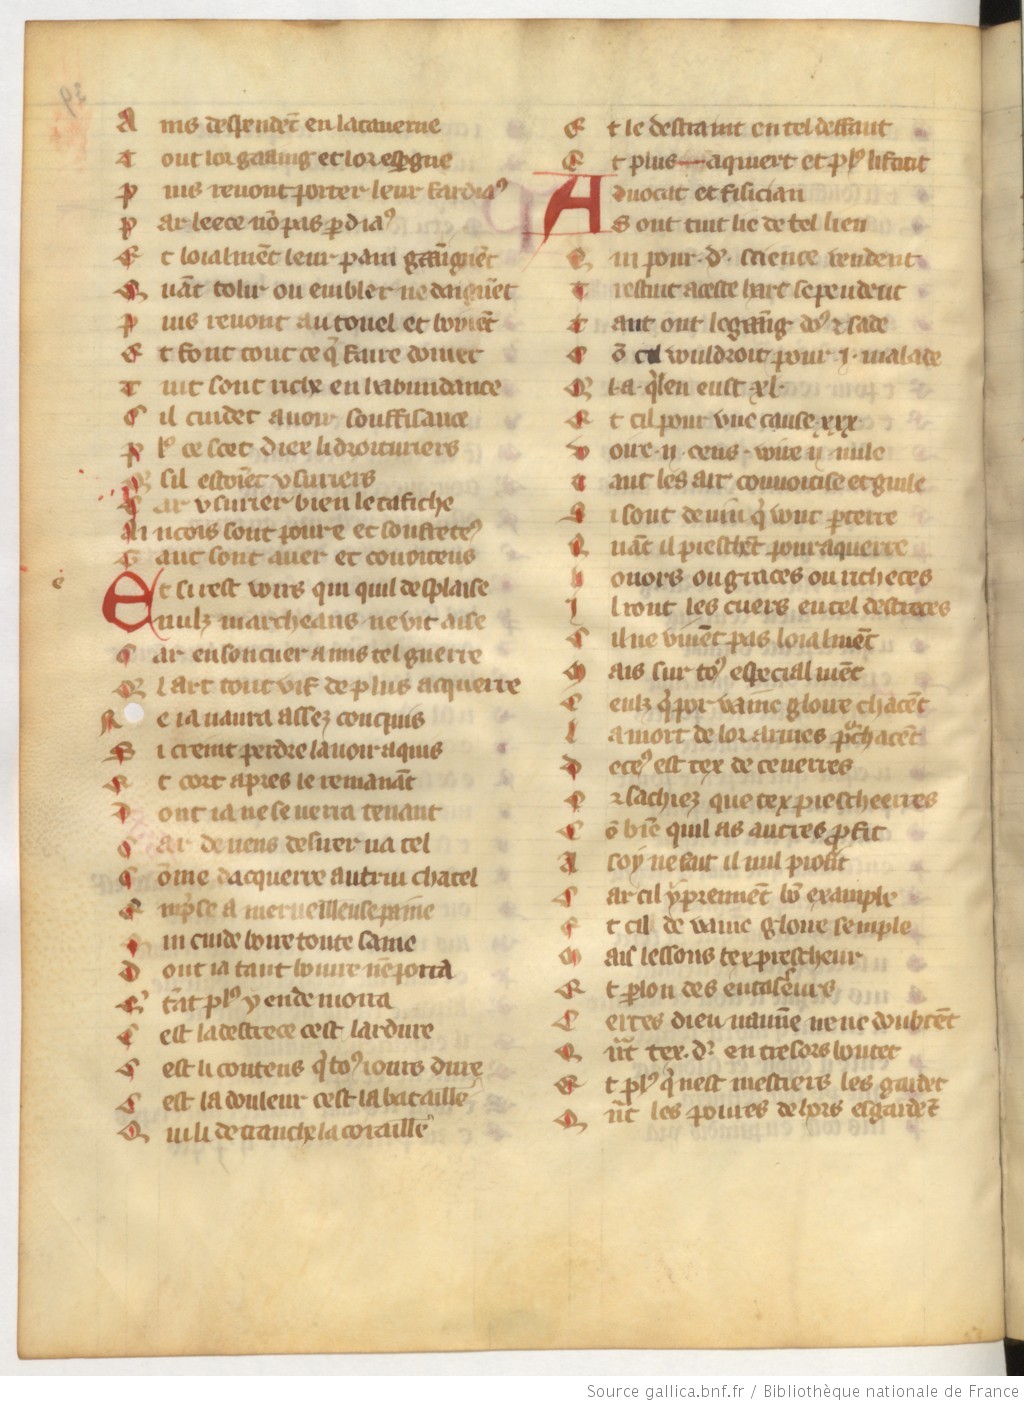 39
A ins despendēt en la tauerne
T out lor gaaing et lor espgne
P uis reuont porter leur fardiaꝰ
P ar leece nō pas p diaꝰ
E t loialmēt leur pain gaaīgnēt
Q uāt tolir ou embler ne daignēt
P uis reuont au tonel et boiuēt
E t font tout ce qͥ faire doiuēt
T uit sont riche en habundance
C il cuidēt auoir souffisance
P lꝰ ce scet diex li droituriers
Q sil estoiēt vsuriers
C ar vsurier bien le tafiche
Ai ncois sont poure et souffreteꝰ
T ant sont auer et couoiteus
e
Et si rest voirs qui quil desplaise
E nulz marcheans ne vit aise
C ar en son cuer a mis tel guerre
Q l art tout vif de plus acquerre
N e ia naura assez conquis
S i crient perdre lauoir aquis
E t cort apres le remanāt
D ont ia ne se verra tenant
C ar de riens desirer na tel
C ōme dacquerre autrui chatel
E mpͥse a merueilleuse paine
Q ui cuide boire toute saine
D ont ia tant boiure ne porra
E tāt plꝰ y en demorra
C est la destrece cest lardure
C est li contens qͥ toꝰ iours dure
C est la douleur cest la bataille
Q ui li detranche la coraille
E t le destraint en tel deffaut
E t plus aquiert et plꝰ li faut
A duocat et fisician
S ont tuit lie de tel lien
C il pour .d. science vendent
T restuit a ceste hart se pendent
T ant ont le gaāīg doꝰ ⁊ sade
C ō cil vouldroit pour .j. malade
Q l a qͥl en eust .xl.
E t cil pour vne cause .xxx.
V oire .ij. cens voire .ij. mile
T ant les art couuoitise et guile
S i sont deuin qͥ vont p terre
Q uāt il pieschēt pour aquerre
H onors ou graces ou richeces
I l ront les cuers en tel destreces
C il ne viuēt pas loialmēt
M ais sur toꝰ especialmēt
C eulz qͥ por vaine gloire chacēt
L a mort de lor armes pͦchacēt
D eceꝰ est tex deceuerres
C ⁊ sachiez que tex prescheerres
C ō biē quil as autres pͦfit
A soy ne fait il nul profit
C ar cil y prennēt bō example
E t cil de vaine gloire semple
M ais lessons tex prescheur
E t plon des entasseurs
C ertes dieu naimēt ne ne doubtēt
Q nāt tex .d. en tresors boutēt
E t plꝰ qͥ nest mestiers les gardēt
Q nāt les poures dehors esgardēt
Source gallica.bnf.fr / Bibliothèque nationale de France